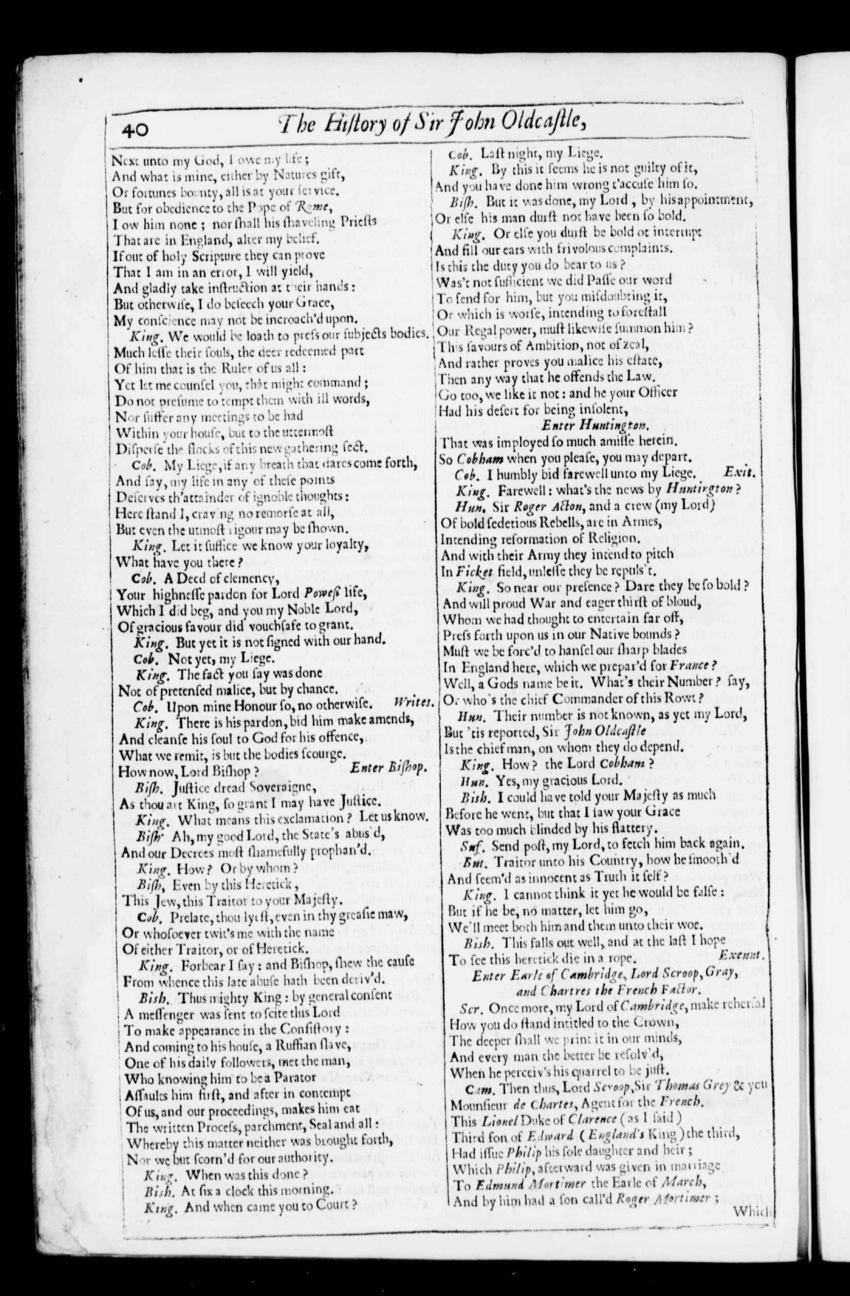 40
The Hiſtory of Sir John Oldcaſtle,
Next unto my God, I owe my life;
And what is mine, either by Natures gift,
Or fortunes bounty, all is at your ſervice.
But for obedience to the Pope of Rome,
I ow him none; nor ſhall his ſhaveling Prieſts
That are in England, alter my belief.
If out of holy Scripture they can prove
That I am in an error, I will yield,
And gladly take inſtruction at their hands:
But otherwiſe, I do beſeech your Grace,
My conſcience may not be incroach'd upon.
King. We would be loath to preſs our ſubjects bodies.
Much leſſe their ſouls, the deer redeemed part
Of him that is the Ruler of us all:
Yet let me counſel you, that might command;
Do not preſume to tempt them with ill words,
Nor ſuffer any meetings to be had
Within your houſe, but to the uttermoſt
Diſperſe the flocks of this new gathering ſect.
Cob. My Liege, if any breath that dares come forth,
And ſay, my life in any of theſe points
Deſerves th'attainder of ignoble thoughts:
Here ſtand I, craving no remorſe at all,
But even the utmoſt rigour may be ſhown.
King. Let it ſuffice we know your loyalty,
What have you there?
Cob. A Deed of clemency,
Your highneſſe pardon for Lord Poweſs life,
Which I did beg, and you my Noble Lord,
Of gracious favour did vouchſafe to grant.
King. But yet it is not ſigned with our hand.
Cob. Not yet, my Liege.
King. The fact you ſay was done
Not of pretenſed malice, but by chance.
Cob. Upon mine Honour ſo, no otherwiſe. Writes.
King. There is his pardon, bid him make amends,
And cleanſe his ſoul to God for his offence,
What we remit, is but the bodies ſcourge.
How now, Lord Biſhop? Enter Biſhop.
Biſh. Juſtice dread Soveraigne,
As thou art King, ſo grant I may have Juſtice.
King. What means this exclamation? Let us know.
Biſh. Ah, my good Lord, the State's abus'd,
And our Decrees moſt ſhamefully prophan'd.
King. How? Or by whom?
Biſh, Even by this Heretick,
This Jew, this Traitor to your Majeſty.
Cob. Prelate, thou lyſt, even in thy greaſie maw,
Or whoſoever twit's me with the name
Of either Traitor, or of Heretick.
King. Forbear I ſay: and Biſhop, ſhew the cauſe
From whence this late abuſe hath been deriv'd.
Bish. Thus mighty King: by general conſent
A meſſenger was ſent to ſcite this Lord
To make appearance in the Conſiſtory:
And coming to his houſe, a Ruffian ſlave,
One of his daily followers, met the man,
Who knowing him to be a Parator
Aſſaults him firſt, and after in contempt
Of us, and our proceedings, makes him eat
The written Proceſs, parchment, Seal and all:
Whereby this matter neither was brought forth,
Nor we but ſcorn'd for our authority.
King. When was this done?
Bish. At ſix a clock this morning.
King. And when came you to Court?
Cob. Laſt night, my Liege.
King. By this it ſeems he is not guilty of it,
And you have done him wrong t'accuſe him ſo.
Biſh. But it was done, my Lord, by his appointment,
Or elſe his man durſt not have been ſo bold.
King. Or elſe you durſt be bold to interrupt
And fill our ears with frivolous complaints.
Is this the duty you do bear to us?
Was't not ſufficient we did Paſſe our word
To ſend for him, but you miſdoubting it,
Or which is worſe, intending to foreſtall
Our Regal power, muſt likewiſe ſummon him?
This ſavours of Ambition, not of zeal,
And rather proves you malice his eſtate,
Then any way that he offends the Law.
Go too, we like it not: and he your Officer
Had his deſert for being inſolent,
Enter Huntington.
That was imployed ſo much amiſſe herein.
So Cobham when you pleaſe, you may depart.
Cob. I humbly bid farewell unto my Liege. Exit.
King. Farewell: what's the news by Huntington?
Hun. Sir Roger Acton, and a crew (my Lord)
Of bold ſedetious Rebells, are in Armes,
Intending reformation of Religion.
And with their Army they intend to pitch
In Ficket field, unleſſe they be repuls't.
King. So near our preſence? Dare they be ſo bold?
And will proud War and eager thirſt of bloud,
Whom we had thought to entertain far off,
Preſs forth upon us in our Native bounds?
Muſt we be forc'd to hanſel our ſharp blades
In England here, which we prepar'd for France?
Well, a Gods name be it. What's their Number? ſay,
Or who's the chief Commander of this Rowt?
Hun. Their number is not known, as yet my Lord,
But 'tis reported, Sir John Oldcaſtle
Is the chief man, on whom they do depend.
King. How? the Lord Cobham?
Hun. Yes, my gracious Lord.
Bish. I could have told your Majeſty as much
Before he went, but that I ſaw your Grace
Was too much blinded by his flattery.
Suf. Send poſt, my Lord, to fetch him back again.
But. Traitor unto his Country, how he ſmooth'd
And ſeem'd as innocent as Truth it ſelf?
King. I cannot think it yet he would be falſe:
But if he be, no matter, let him go,
We'll meet both him and them unto their woe.
Bish. This falls out well, and at the laſt I hope
To ſee this heretick die in a rope. Exeunt.
Enter Earle of Cambridge, Lord Scroop, Gray,
and Chartres the French Factor.
Scr. Once more, my Lord of Cambridge, make reherſal
How you do ſtand intitled to the Crown,
The deeper ſhall we print it in our minds,
And every man the better be reſolv'd,
When he perceiv's his quarrel to be juſt.
Cam. Then thus, Lord Scroop, Sir Thomas Grey & you
Mounſieur de Chartes, Agent for the French.
This Lionel Duke of Clarence (as I ſaid)
Third ſon of Edward (England's King) the third,
Had iſſue Philip his ſole daughter and heir;
Which Philip, afterward was given in marriage
To Edmund Mortimer the Earle of March,
And by him had a ſon call'd Roger Mortimer;
Which